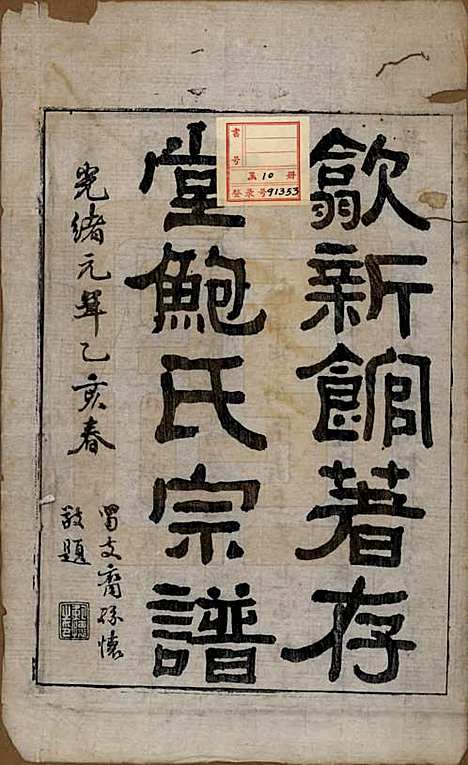 歙新館著存
堂鮑氏宗譜
光緒元年乙亥春
蜀支裔孫懷
敬題
書
號
共 10 冊
登录号 91353